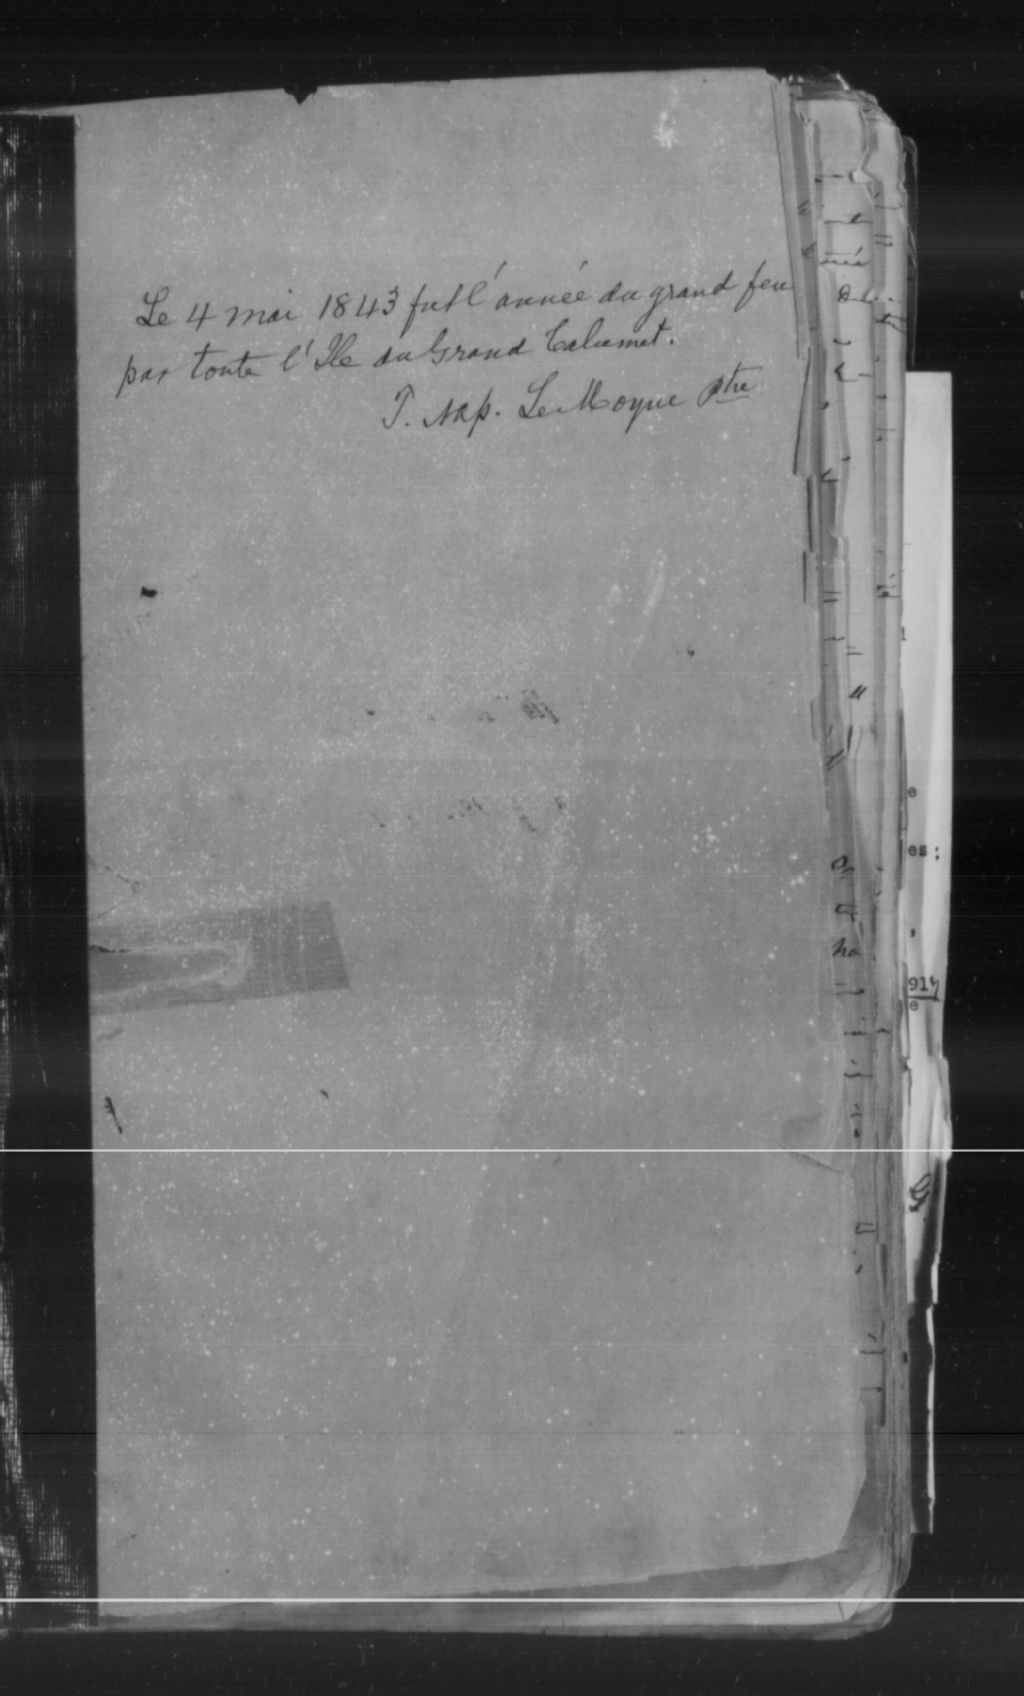 Le 4 mai 1843 fut l'année du grand feu
par toute l'Ile du Grand Calumet.
J. Nap. Le Moyne Ptre
no
e
es:
917
e